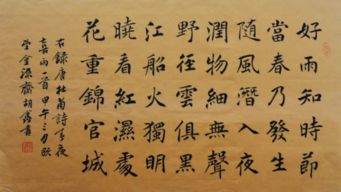 好雨知時節
當春乃發生
隨風潛入夜
潤物細無聲
野徑雲俱黑
江船火獨明
曉看紅濕處
花重錦官城
右錄唐杜甫詩春夜
喜雨一首甲午三月
胡書